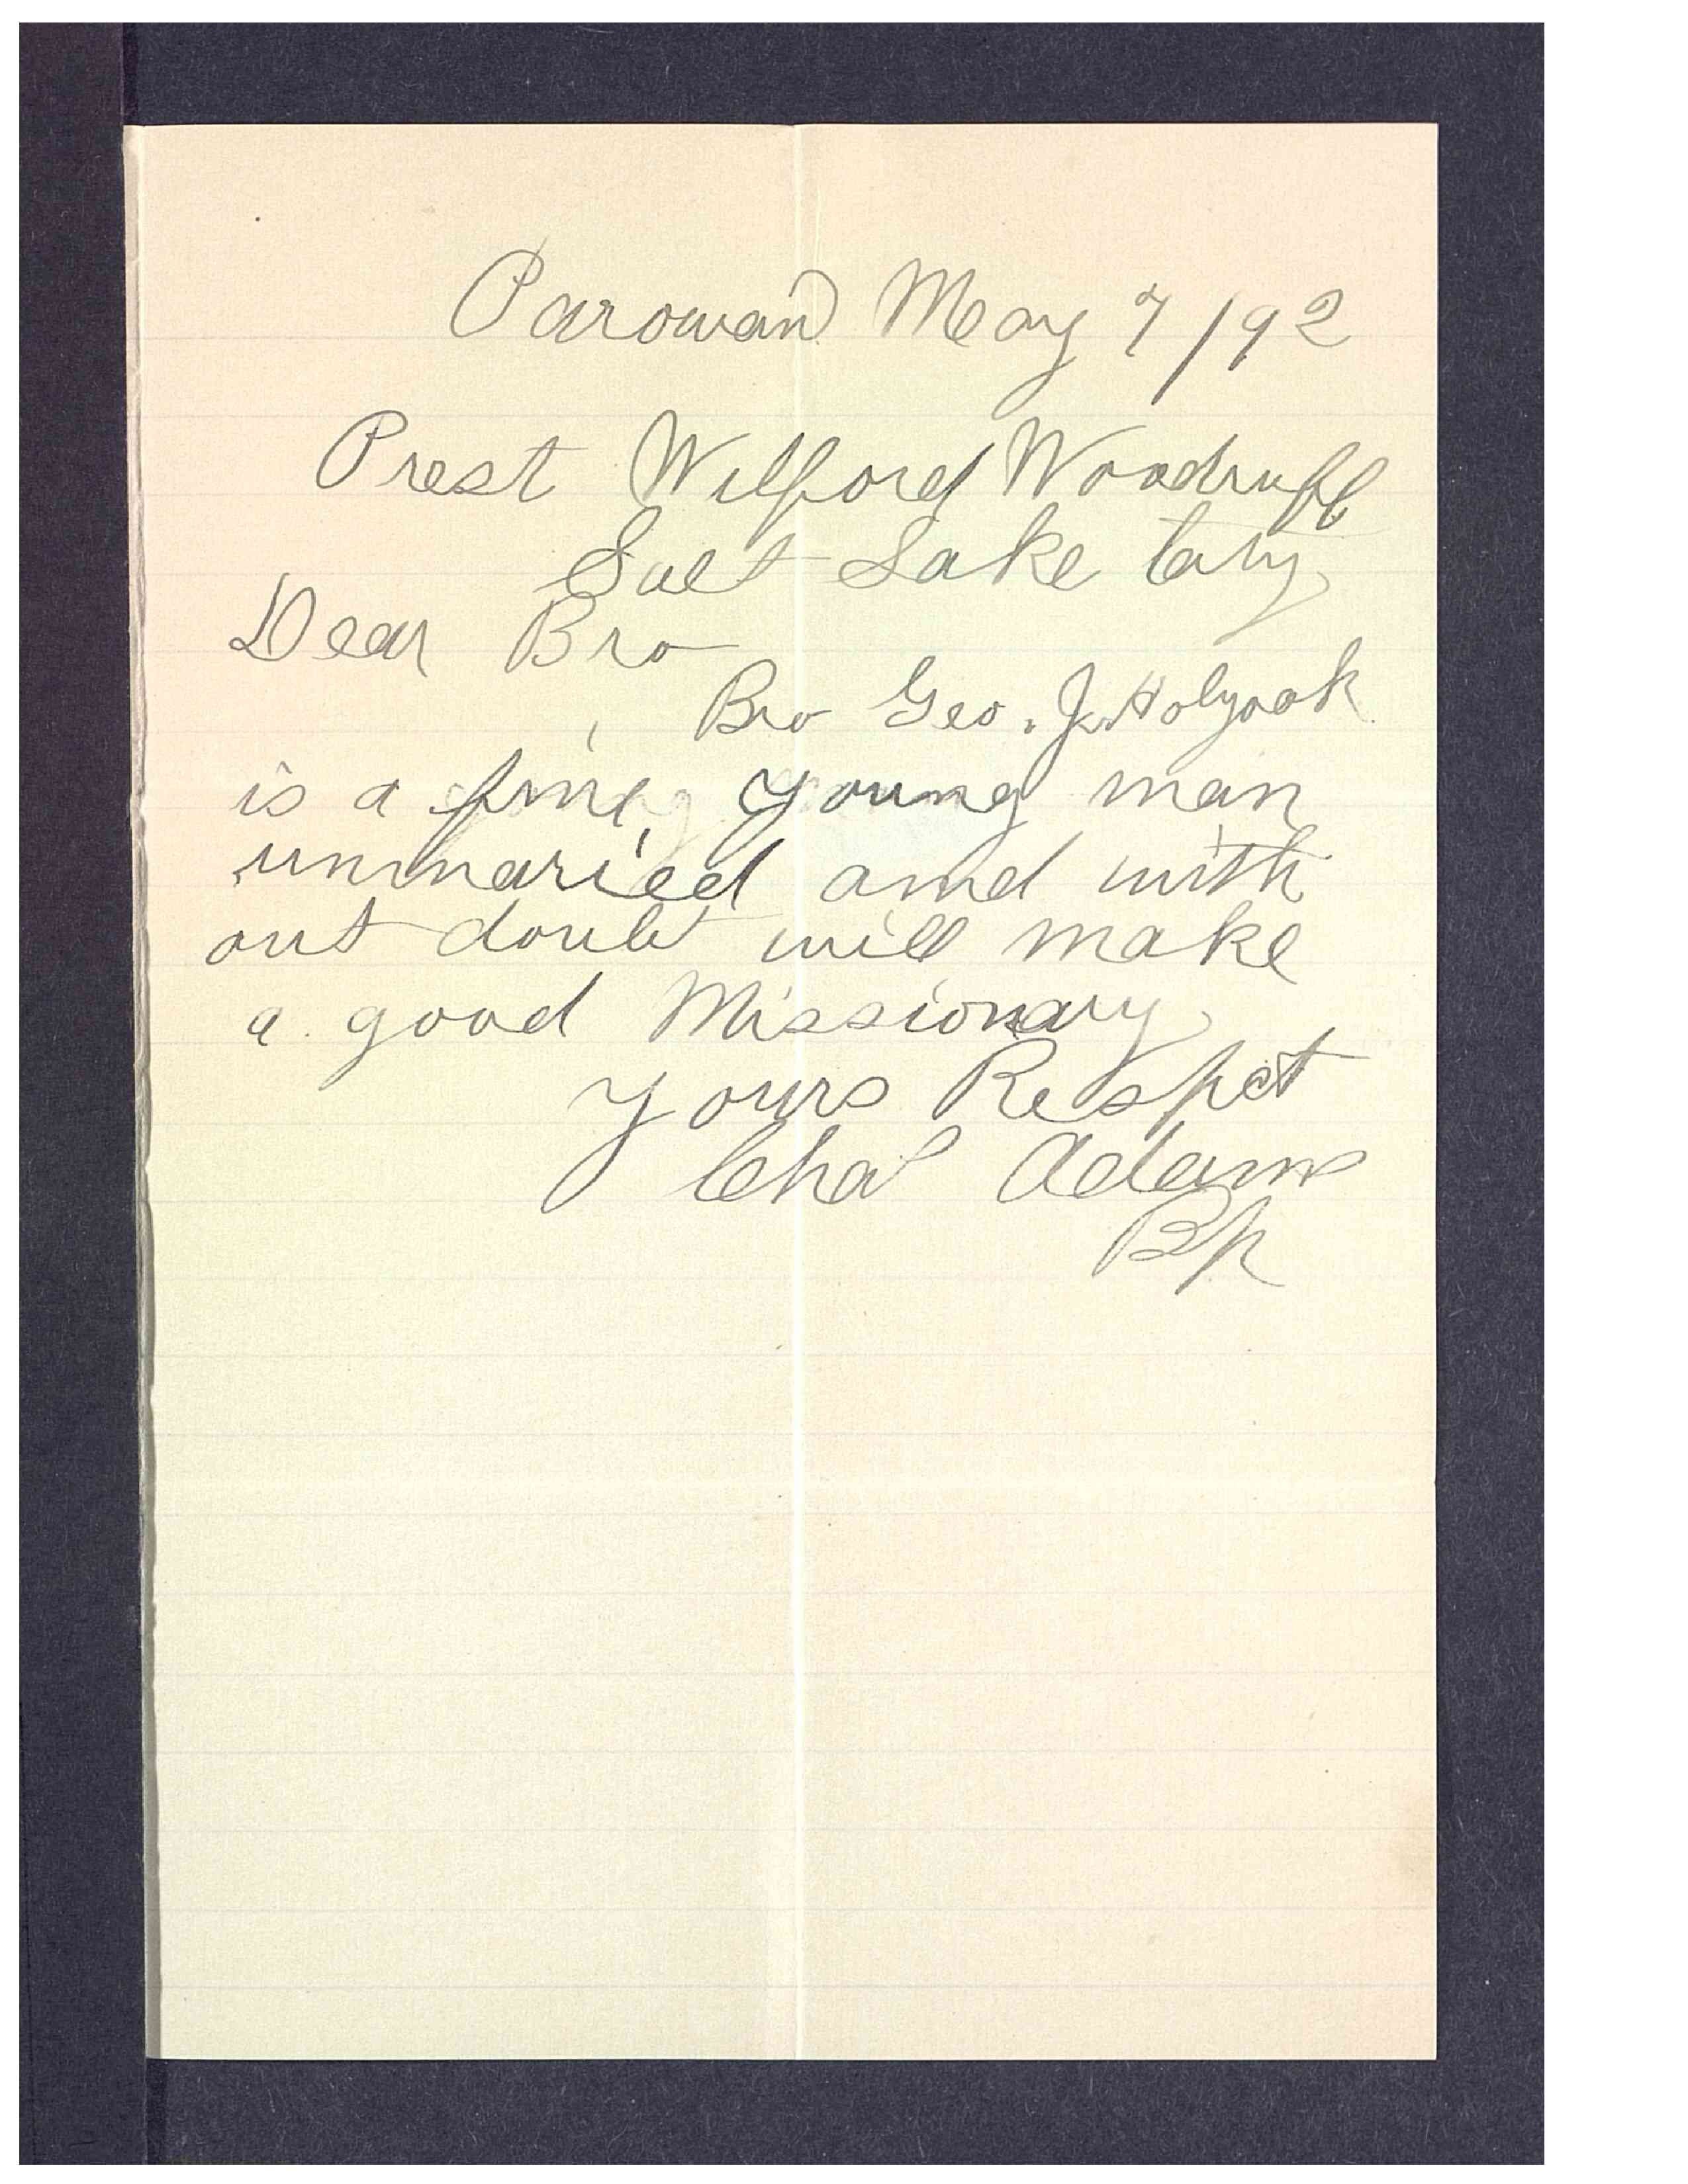 Parowan May 7/92
Prest Wilford Woodruff
Salt Lake City
Dear Bro
Bro Geo. J. Holyoak
is a fine young man
unmaried and with
out doubt will make
a good Missionary
yours Respct
Chas Adams
Bp